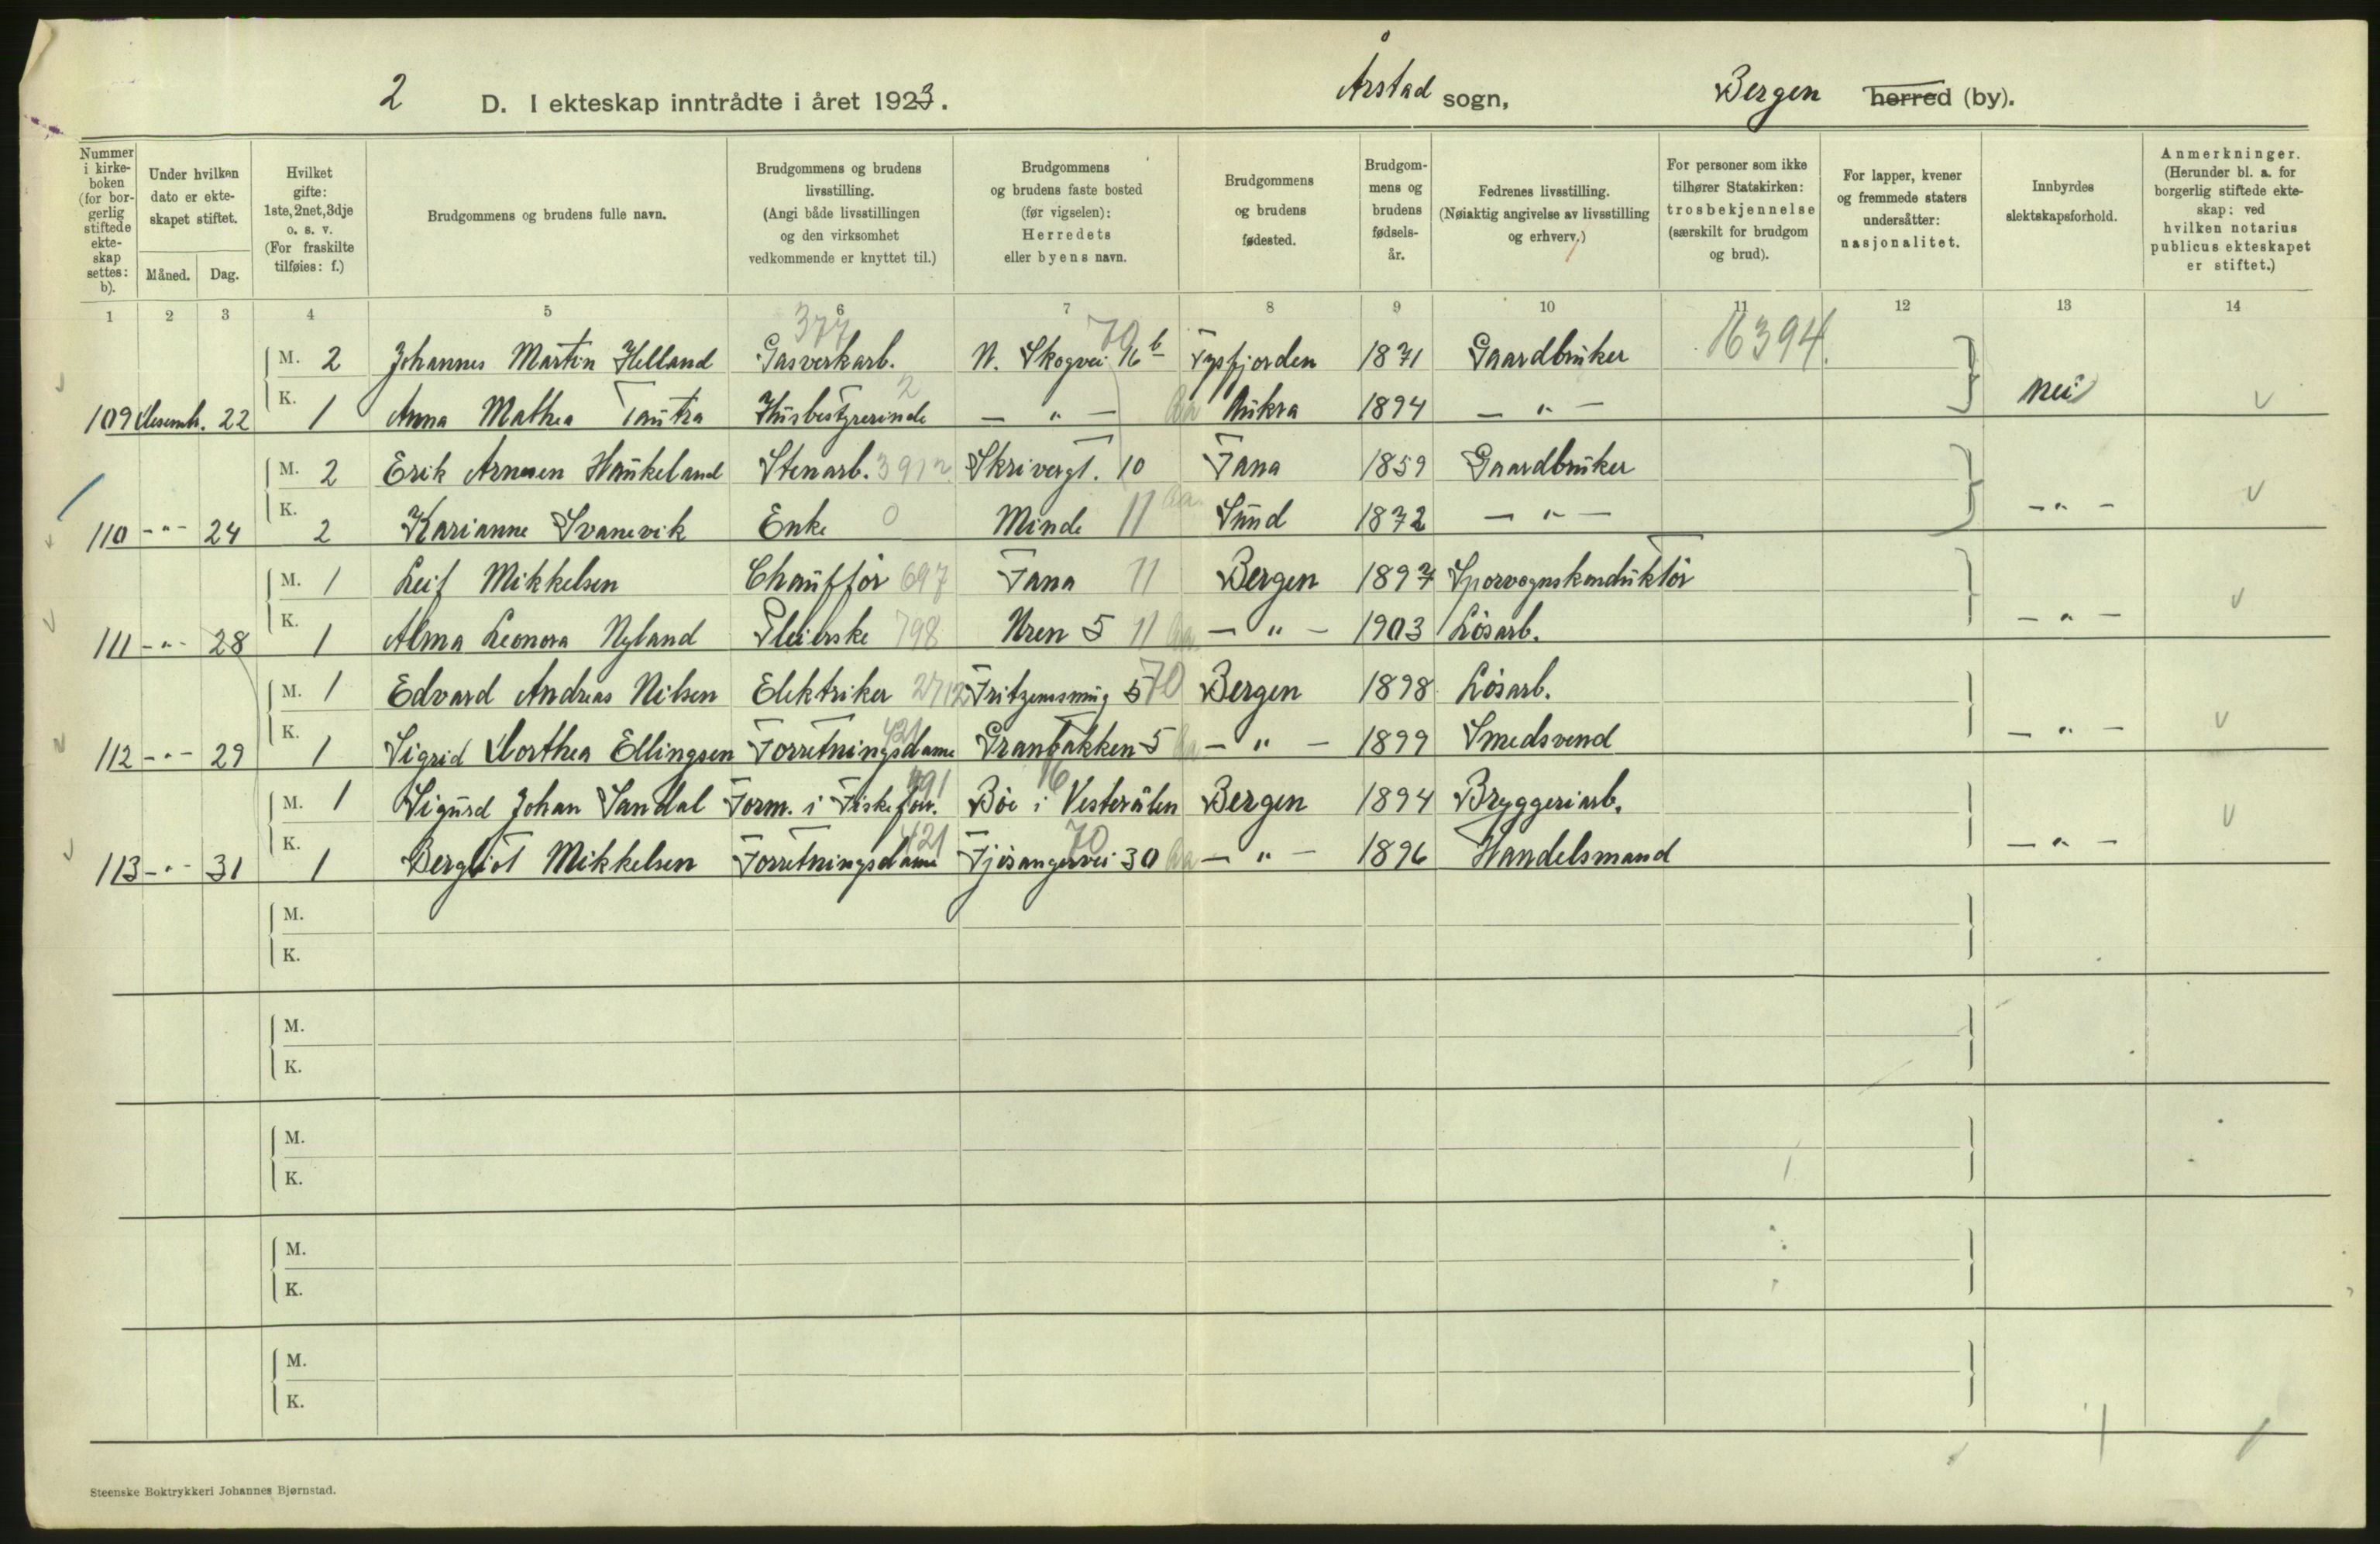 2 D. I ekteskap inntrådte i året 1923. Årstad sogn, Bergen herred (by).
Nummer i kirke-boken (for bor-gerlig stiftede ekte-skap settes: b).
Under hvilken dato er ekte-skapet stiftet.
Måned. Dag.
Hvilket gifte: 1ste, 2net, 3dje o. s. v. (For fraskilte tilføies: f.)
Brudgommens og brudens fulle navn.
Brudgommens og brudens livsstilling. (Angi både livsstillingen og den virksomhet vedkommende er knyttet til.)
Brudgommens og brudens faste bosted (før vigselen): Herredets eller byens navn.
Brudgommens og brudens fødested.
Brudgom-mens og brudens fødsels-år.
Fedrenes livsstilling. (Nøiaktig angivelse av livsstilling og erhverv.)
For personer som ikke tilhører Statskirken: trosbekjennelse (særskilt for brudgom og brud).
For lapper, kvener og fremmede staters undersåtter: nasjonalitet.
Innbyrdes slektskapsforhold.
Anmerkninger. (Herunder bl. a. for borgerlig stiftede ekte-skap: ved hvilken notarius publicus ekteskapet er stiftet.)
1 2 3 4 5 6 7 8 9 10 11 12 13 14
377 70
M. 2 Johannes Martin Helland Gasverkarb. N. Skogvei 16b Tysfjorden 1871 Gaardbruker 16394.
109 Desemb. 22 K. 1 Anna Mathea Tautra Husbestyrerinde 2 — " — Aa Aukra 1894 — " — nei
M. 2 Erik Arnesen Haukeland Stenarb. 3912 Skrivergt. 10 Fana 1859 Gaardbruker
110 - " - 24 K. 2 Karianne Svanevik Enke 0 Minde 11 Aa Sund 1872 — " — — " —
M. 1 Leif Mikkelsen Chauffør 697 Fana 11 Bergen 1897 Sporvognskonduktør
111 - " - 28 K. 1 Alma Leonora Nyland Pleierske 798 Uren 5 11 Aa — " — 1903 Løsarb. — " —
M. 1 Edvard Andreas Nilsen Elektriker 2712 Fritzensmug 5 70 Bergen 1898 Løsarb.
112 - " - 29 K. 1 Sigrid Dorthea Ellingsen Forretningsdame 421 Granbakken 5 Aa — " — 1899 Smedsvend — " —
M. 1 Sigurd Johan Sandal Form. i Fiskeforr. 491 Bøe i Vesterålen 16 Bergen 1894 Bryggeriarb.
113 - " - 31 K. 1 Bergliot Mikkelsen Forretningsdame 421 Fjøsangervei 30 70 Aa — " — 1896 Handelsmand — " —
M.
K.
M.
K.
M.
K.
M.
K.
M.
K.
Steenske Boktrykkeri Johannes Bjørnstad.